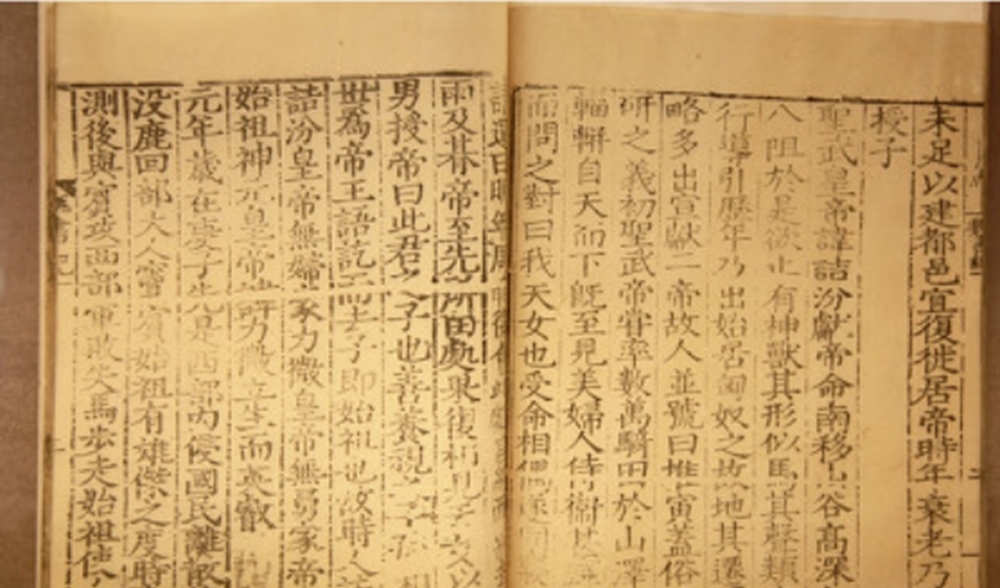 未足以建都邑宜復徙居帝時年衰老乃
授子
聖武皇帝諱詰汾獻帝命南移山谷高深
八阻於是欲止有神獸其形似馬其聲類
行導引歷年乃出始居匈奴之故地其遷
略多出宣獻二帝故人並號曰推寅蓋俗
研之義初聖武帝嘗率數萬騎田於山澤
輜軿自天而下旣至見美婦人侍衞甚
而問之對曰我天女也受命相偶遂
請還曰明年周時復
雨及朞帝至先所田處果復相見天女以
男授帝曰此君之子也善養視之子孫相
世爲帝王語訖而去子即始祖也故時人
詰汾皇帝無婦家力微皇帝無舅家帝
始祖神元皇帝諱力微立生而英叡
元年歲在庚子先是西部內侵國民離散
没鹿回部大人竇賓始祖有雄傑之度時
測後與賓攻西部軍敗失馬步走始祖使人